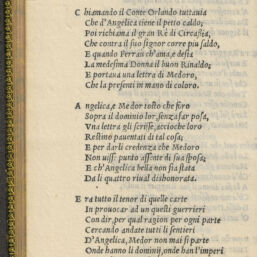 Chiamando il Conte Orlando tuttauia
Che d'Angelica tiene il petto caldo;
Poi richiama il gran Rè di Circaſsia,
Che contra il ſuo ſignor corre piu ſaldo,
E quando Ferrau ch'ama, e deſia
La medeſima Donna il buon Rinaldo;
E portaua una lettra di Medoro,
Che la preſenti in mano di coloro.
Angelica, e Medor toſto che foro
Sopra il dominio lor, ſenza far poſa,
Vna lettra gli ſcriſſe, accioche loro
Reſtino pauentati di tal coſa;
E per darli credenza che Medoro
Non uiſſ: punto aſſente di ſua ſpoſa;
E ch'Angelica bella non ſia ſtata
Da li quattro riual dishonorata.
Era tutto il tenor di quelle carte
In prouocar ad un queſti guerrieri
Con dir, per qual ragion per ogni parte
Cercando andate tutti li ſentieri
D'Angelica, Medor non mai ſi parte
Onde hanno li dominij, onde han l'imperi